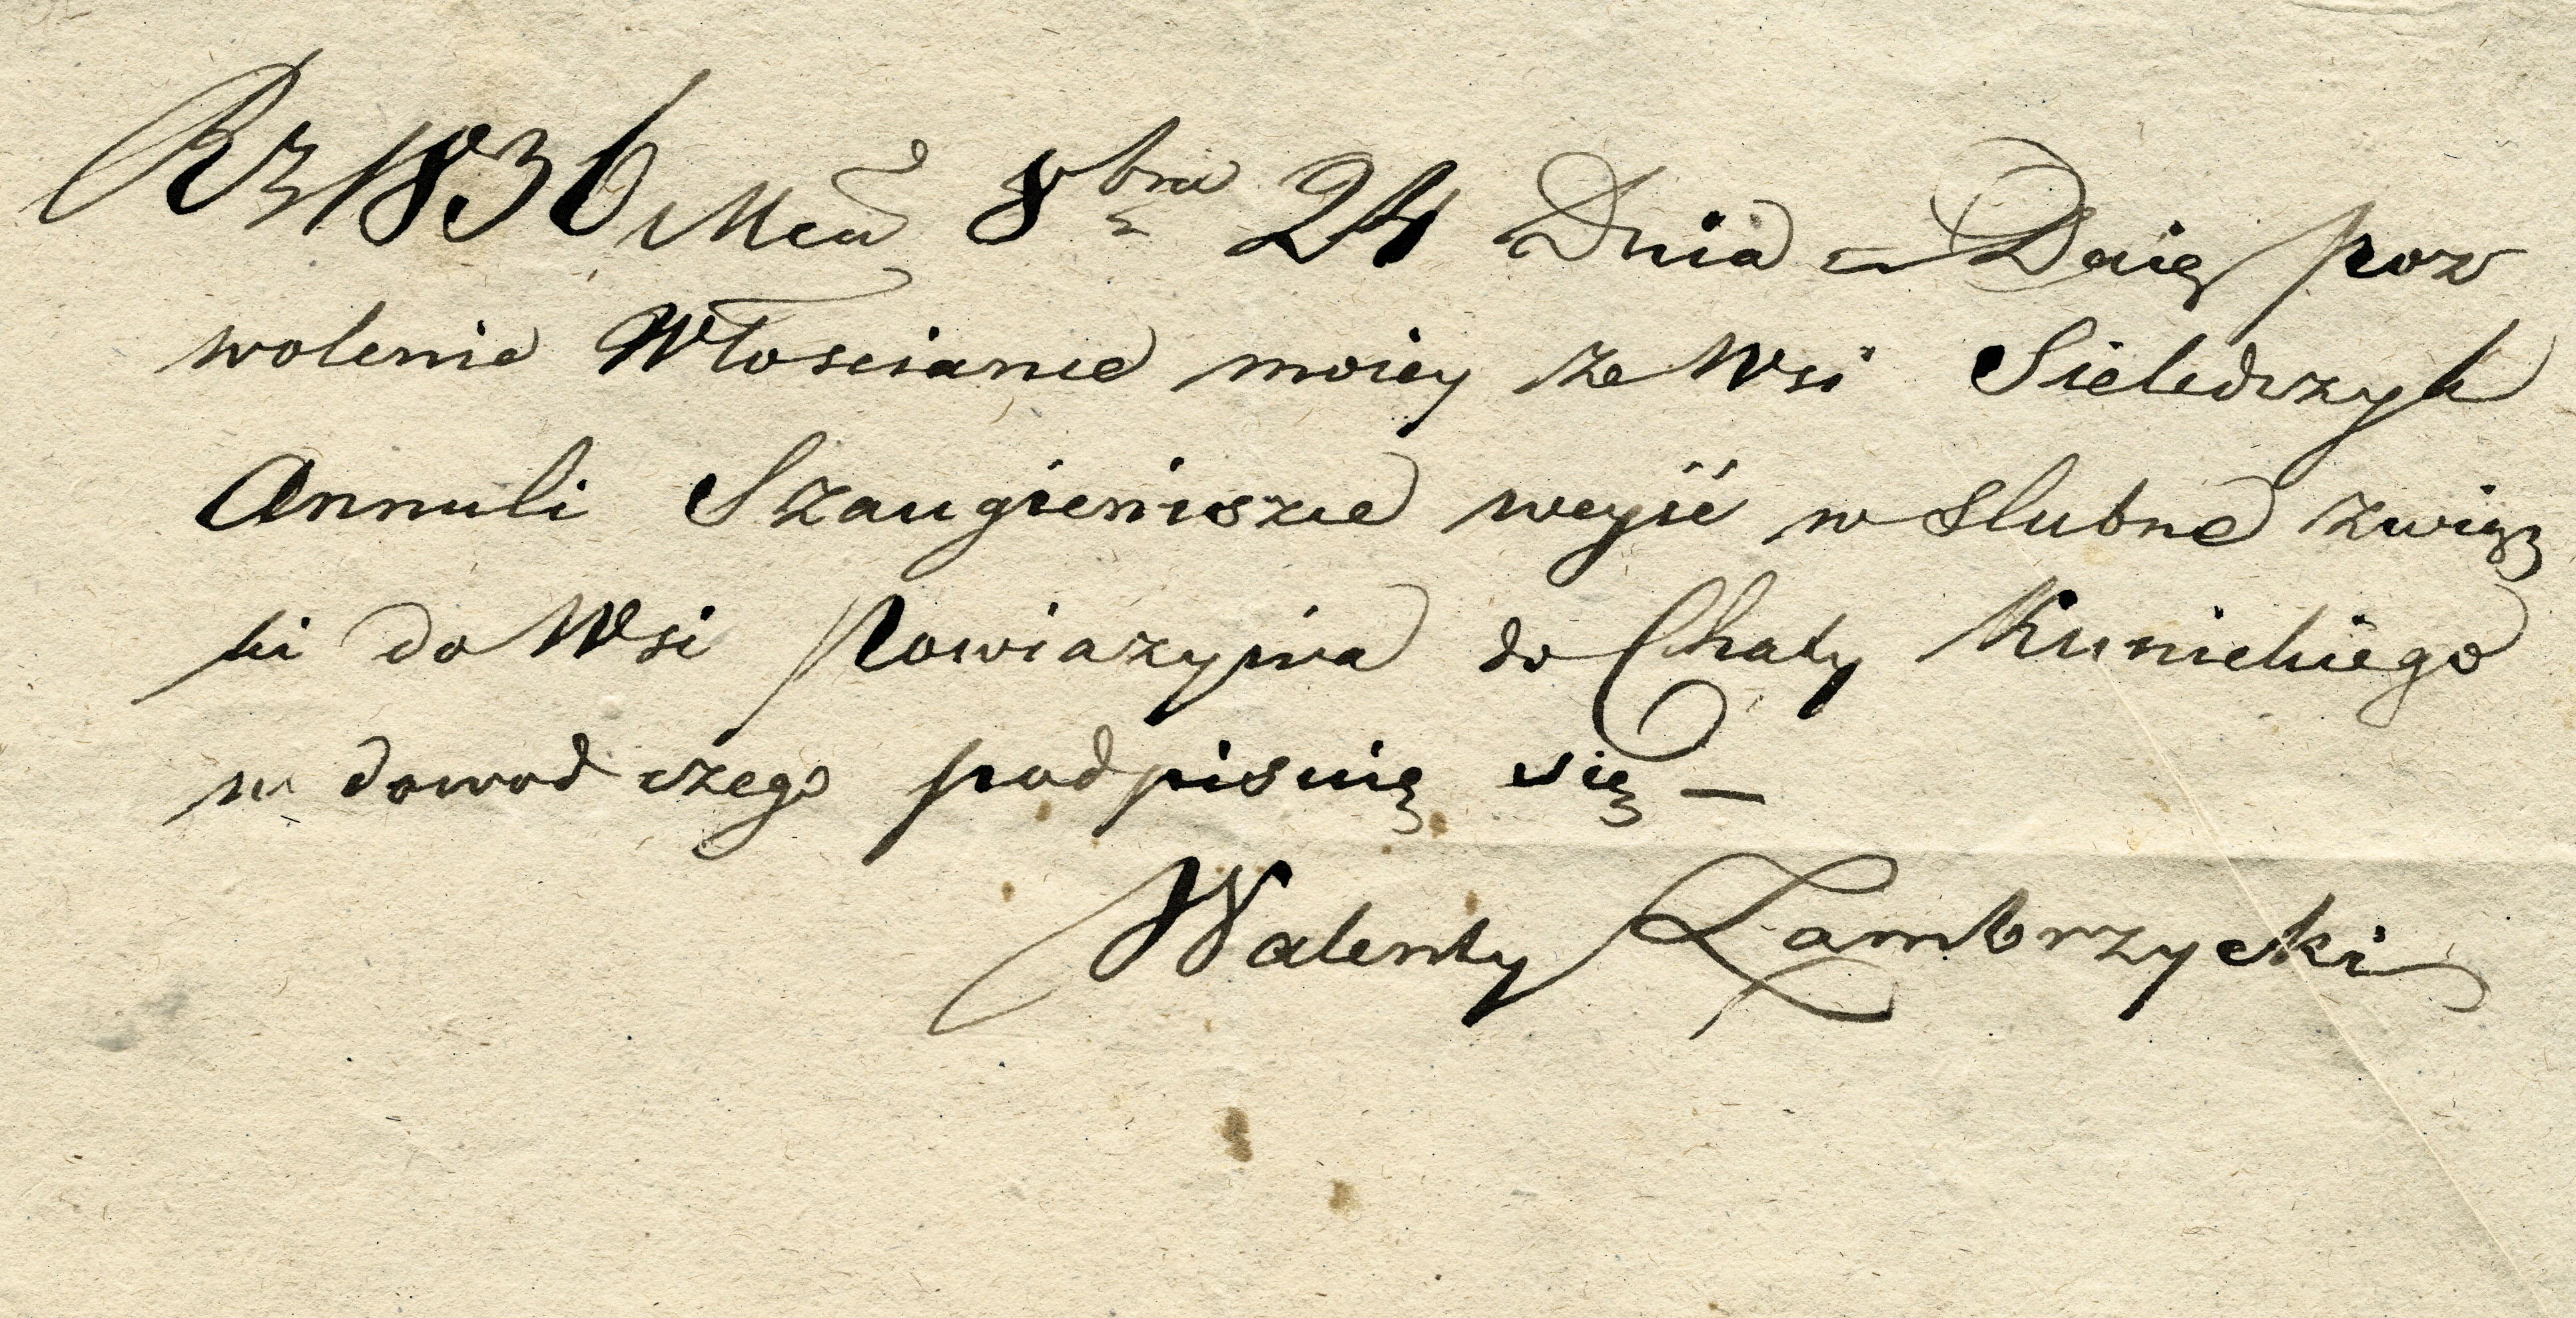 Rz 1836 Mca 8bra 24 Dnia = Daię poz
wolenie Włoscianie moiey ze Wsi Sieledczyk
Annuli Szaugieniszie weyść w slubne zwią
ki do Wsi Powiazynia do Chaty Kunickiego
w dowod czego podpisuię się —
Walenty Zambrzycki